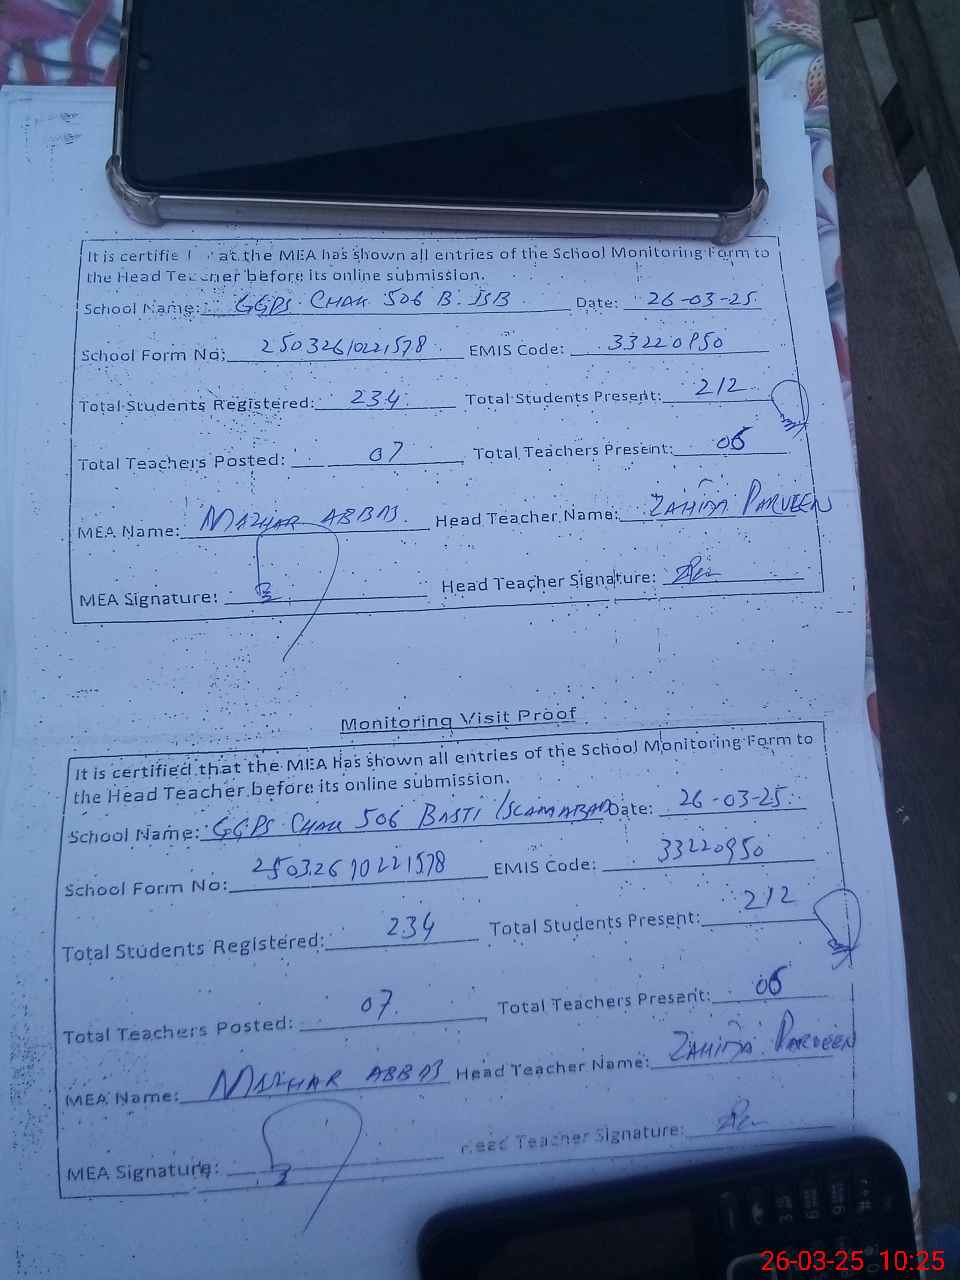 It is certifie at the MEA has shown all entries of the School Monitoring Form to
the Head Teacher before its online submission.
School Name: GGPS. CHAK 506 B. ISB Date: 26-03-25.
School Form No: 25032610221578 EMIS Code: 33220950
Total Students Registered: 234 Total Students Present: 212
Total Teachers Posted: 07 Total Teachers Present: 06
MEA Name: MAZHAR ABBAS Head Teacher Name: ZAHIDA PARVEEN
MEA Signature: Head Teacher Signature:
Monitoring Visit Proof
It is certified that the MEA has shown all entries of the School Monitoring Form to
the Head Teacher before its online submission.
School Name: GGPS CHAK 506 BASTI ISLAMABAD Date: 26-03-25.
School Form No: 25032610221578 EMIS Code: 33220950
Total Students Registered: 234 Total Students Present: 212
Total Teachers Posted: 07. Total Teachers Present: 06
MEA Name: MAZHAR ABBAS Head Teacher Name: ZAHIDA PARVEEN
MEA Signature: Head Teacher Signature:
26-03-25 10:25